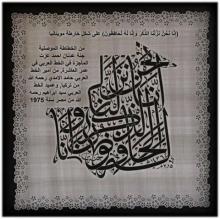 (إنا نحن نزلنا الذكر وإنا له لحافظون) على شكل خارطة موريتانيا
من الخطاطة الموصلية
جنة عدنان احمد عزت
المجازة في الخط العربي في
العاشرة, من أمير الخط
العربي حامد الآمدي رحمه الله
من تركيا و عميد الخط
العربي سيد ابراهيم رحمه
الله من مصر سنة 1975
إنا نحن نزلنا الذكر وإنا له لحافظون